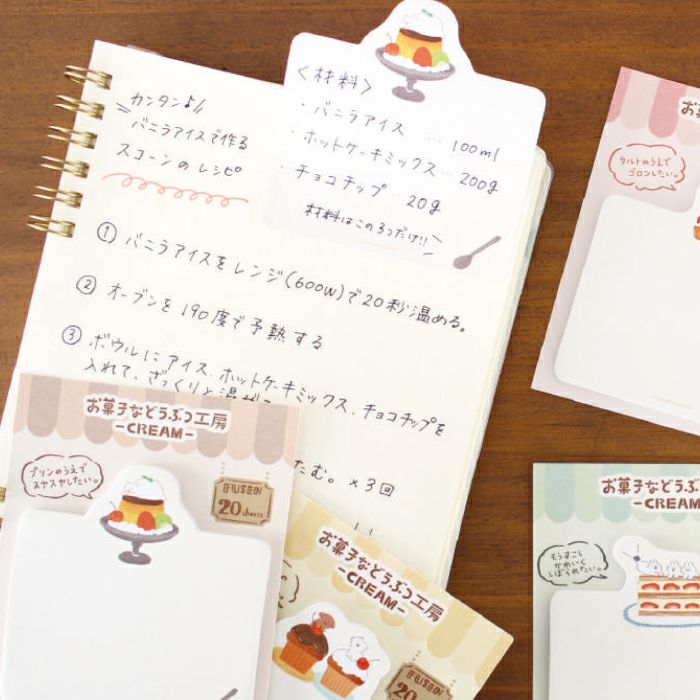 カンタン♪
バニラアイスで作る
スコーンのレシピ
〈材料〉
・バニラアイス … 100ml
・ホットケーキミックス … 200g
・チョコチップ … 20g
材料はこの3つだけ!!
① バニラアイスをレンジ(600W)で20秒温める。
② オーブンを190度で予熱する
③ ボウルにアイス、ホットケーキミックス、チョコチップを
入れて、ざっくりと混ぜ
たたむ。×3回
お菓子などうぶつ工房
-CREAM-
プリンのうえで
スヤスヤしたい。
FUSEN
20 sheets
お菓子などうぶつ工房
-CREAM-
FUSEN
20
タルトのうえで
ゴロンしたい。
お
お菓子などうぶ
-CREAM
もうすこし
かわいく
しぼられたい。